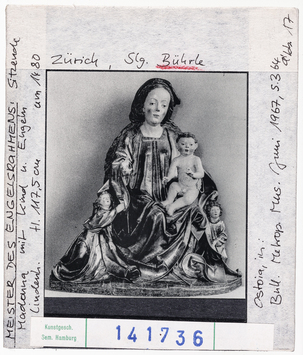 Zürich, Slg. Bührle
MEISTER DES ENGELSRAHMENS: Sitzende
Madonna mit Kind u. Engeln um 1480
Lindenh. H. 117,5 cm
in:
Bull. Metrop. Mus. Juni 1967, S.3
Abb 17
Kunstgesch.
Sem. Hamburg
141736